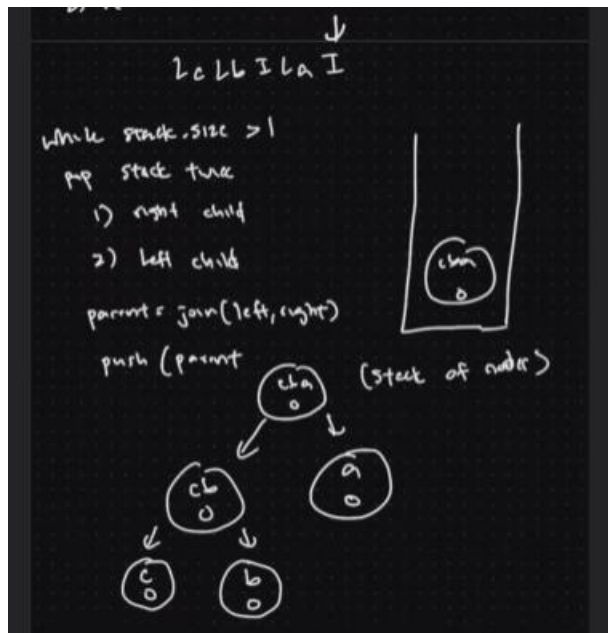 LcLbILaI
while stack.size >1
pop stack twice
1) right child
2) left child
parent = join(left, right)
push (parent
cba
0
(stack of nodes)
cba
0
cb
0
a
0
c
0
b
0